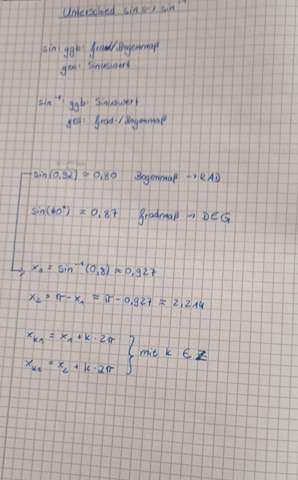 Unterschied sin <-> sin⁻¹
sin: ggb: Grad/Bogenmaß
ges: Sinuswert
sin⁻¹: ggb: Sinuswert
ges: Grad-/Bogenmaß
sin(0,92) = 0,80 Bogenmaß → RAD
sin(60°) = 0,87 Gradmaß → DEG
x₁ = sin⁻¹(0,8) ≈ 0,927
x₂ = π - x₁ ≈ π - 0,927 ≈ 2,214
xₖ₁ = x₁ + k · 2π
mit k ∈ Z
xₖ₂ = x₂ + k · 2π